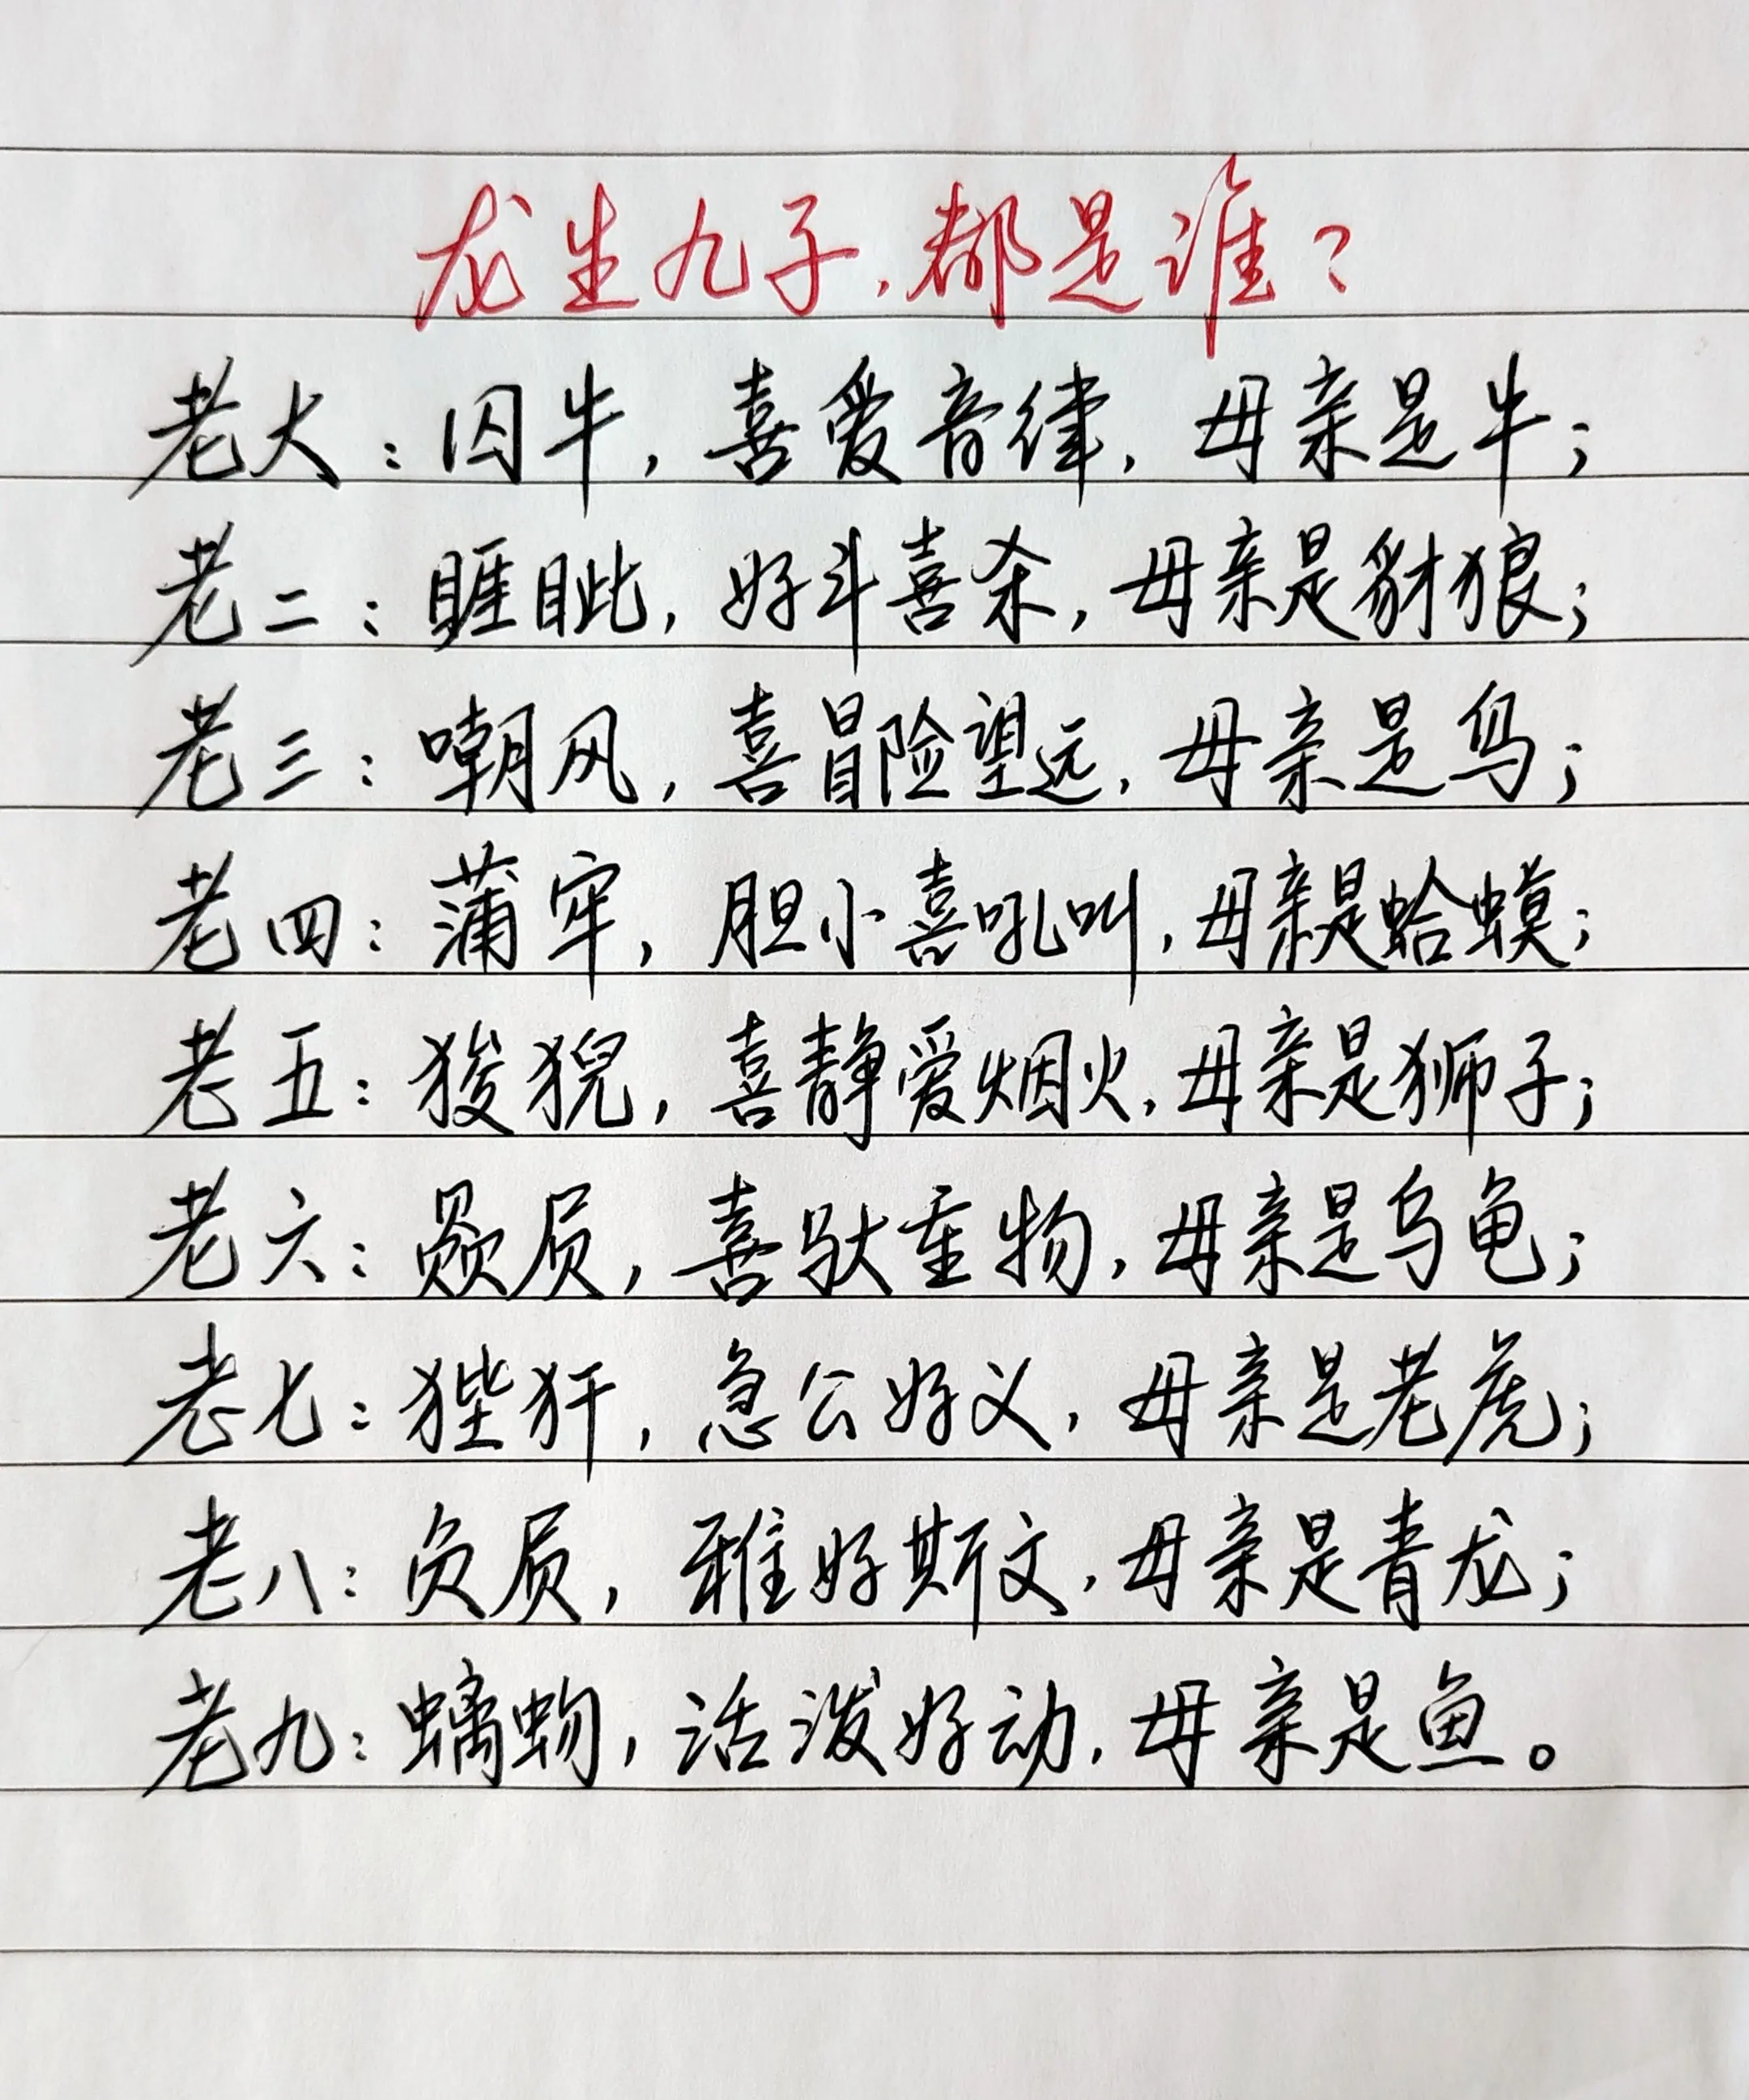 龙生九子,都是谁?
老大:囚牛,喜爱音律,母亲是牛;
老二:睚眦,好斗喜杀,母亲是豺狼;
老三:嘲风,喜冒险望远,母亲是鸟;
老四:蒲牢,胆小喜吼叫,母亲是蛤蟆;
老五:狻猊,喜静爱烟火,母亲是狮子;
老六:赑屃,喜驮重物,母亲是乌龟;
老七:狴犴,急公好义,母亲是老虎;
老八:负屃,雅好斯文,母亲是青龙;
老九:螭吻,活泼好动,母亲是鱼。